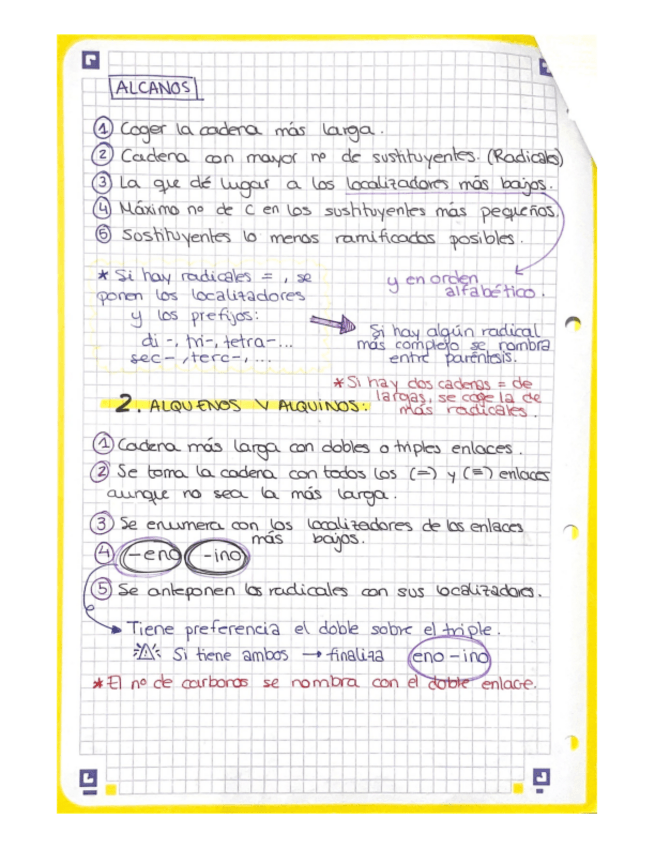 ALCANOS
① Coger la cadena más larga.
② Cadena con mayor nº de sustituyentes. (Radicales)
③ La que dé lugar a los localizadores más bajos.
④ Máximo nº de C en los sustituyentes más pequeños.
⑤ Sostituyentes lo menos ramificados posibles.
y en orden
alfabético.
* Si hay radicales = , se
ponen los localizadores
y los prefijos:
di-, tri-, tetra-...
sec-, terc-, ...
Si hay algún radical
más complejo se nombra
entre paréntesis.
* Si hay dos cadenas = de
largas, se coge la de
más radicales.
2. ALQUENOS Y ALQUINOS:
① Cadena más larga con dobles o triples enlaces.
② Se toma la cadena con todos los (=) y (≡) enlaces
aunque no sea la más larga.
③ Se enumera con los localizadores de los enlaces
más bajos.
④ -eno -ino
⑤ Se anteponen los radicales con sus localizadores.
Tiene preferencia el doble sobre el triple.
Si tiene ambos → finaliza eno-ino
* El nº de carbonos se nombra con el doble enlace.